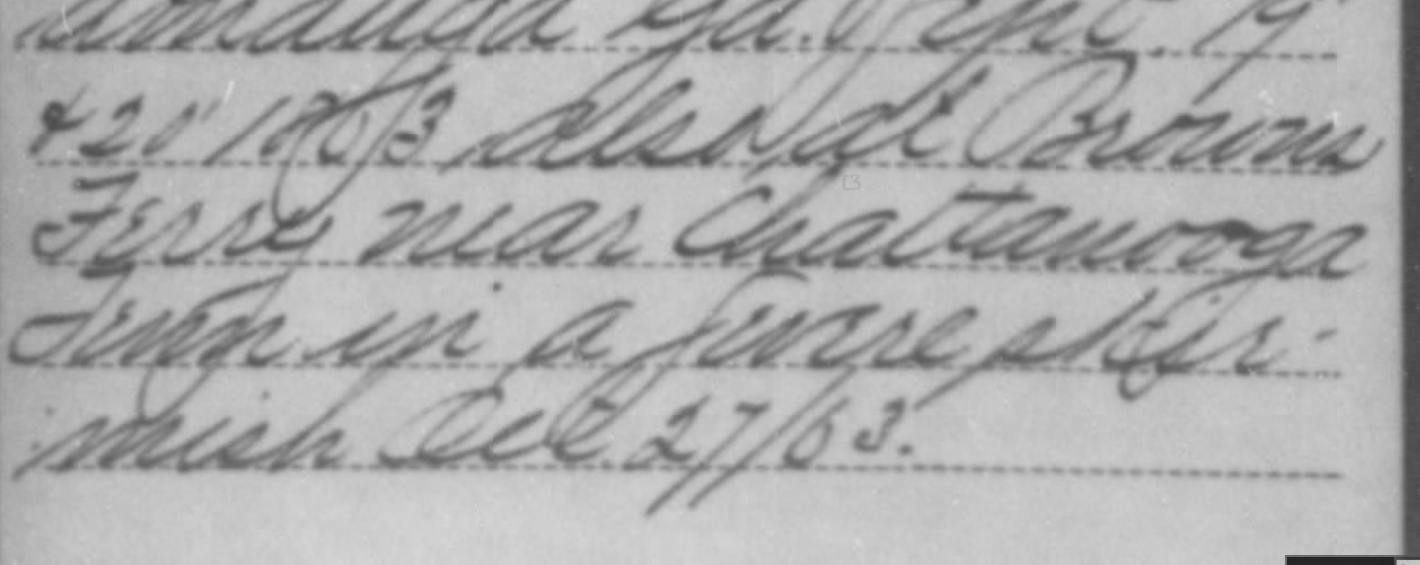 amauga Ga. Sept. 19
& 20 1863 also at Browns
Ferry near Chattanooga
Tenn in a severe skir-
mish Oct 27/63.